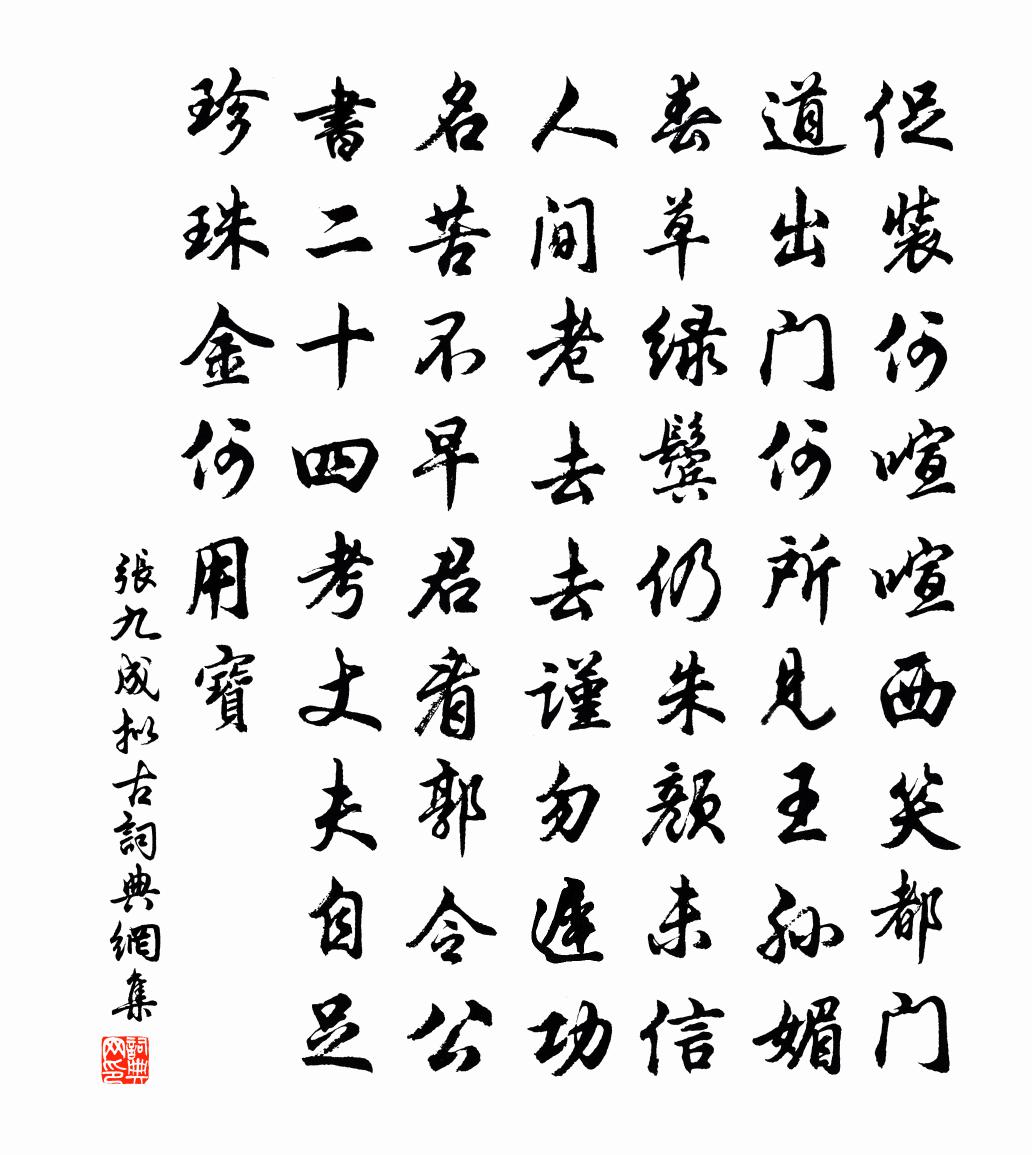 促裝何喧喧西笑都门
道出门何所見王孫媚
春草绿鬓仍朱颜未信
人间老去去谨勿遲功
名苦不早君看郭令公
書二十四考丈夫自足
珍珠金何用寶
張九成拟古詞典網集
詞典网印